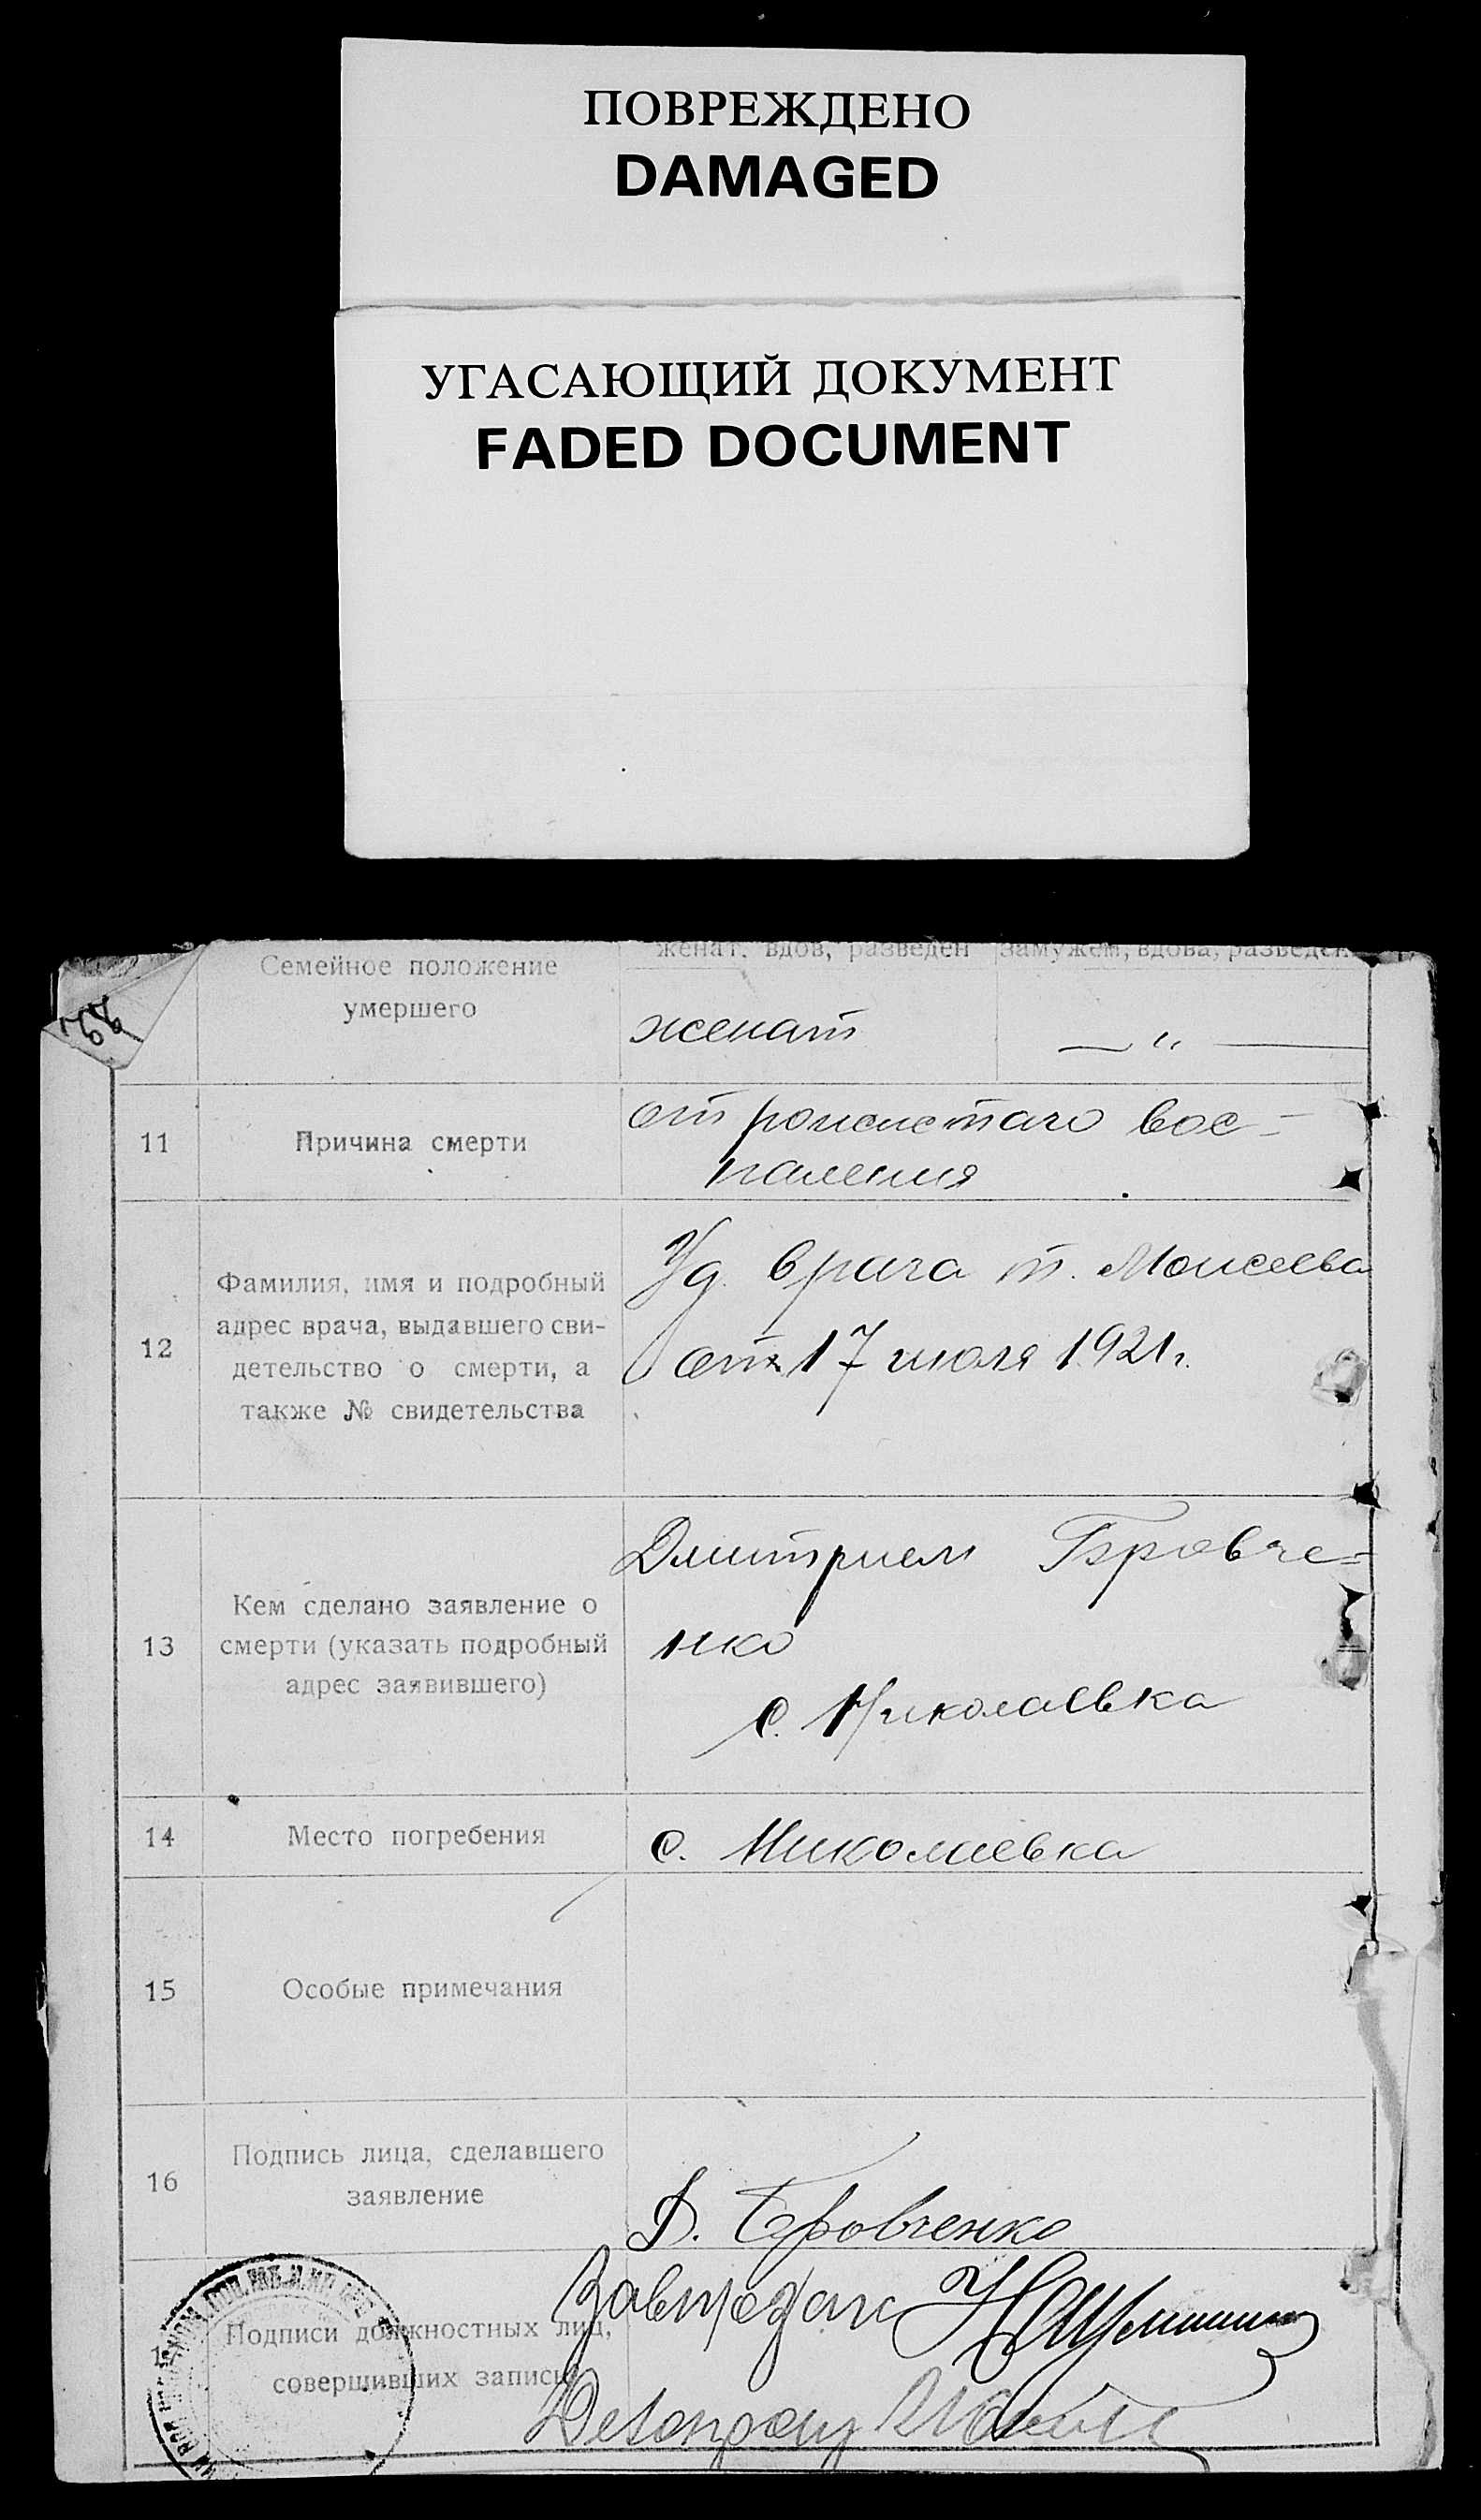 ПОВРЕЖДЕНО
DAMAGED
УГАСАЮЩИЙ ДОКУМЕНТ
FADED DOCUMENT
женат, вдов, разведен замужем, вдова,
Семейное положение
умершего
женат — „ —
11 Причина смерти
от вос-
паления
12 Фамилия, имя и подробный
адрес врача, выдавшего сви-
детельство о смерти, а
также № свидетельства
Уд. врача т. Моисеева
от 17 июля 1921 г.
13 Кем сделано заявление о
смерти (указать подробный
адрес заявившего)
Дмитрием Бровче=
нко
с. Николаевка
14 Место погребения
с. Николаевка
15 Особые примечания
16 Подпись лица, сделавшего
заявление
Д. Бровченко
Подписи должностных лиц,
совершивших запись